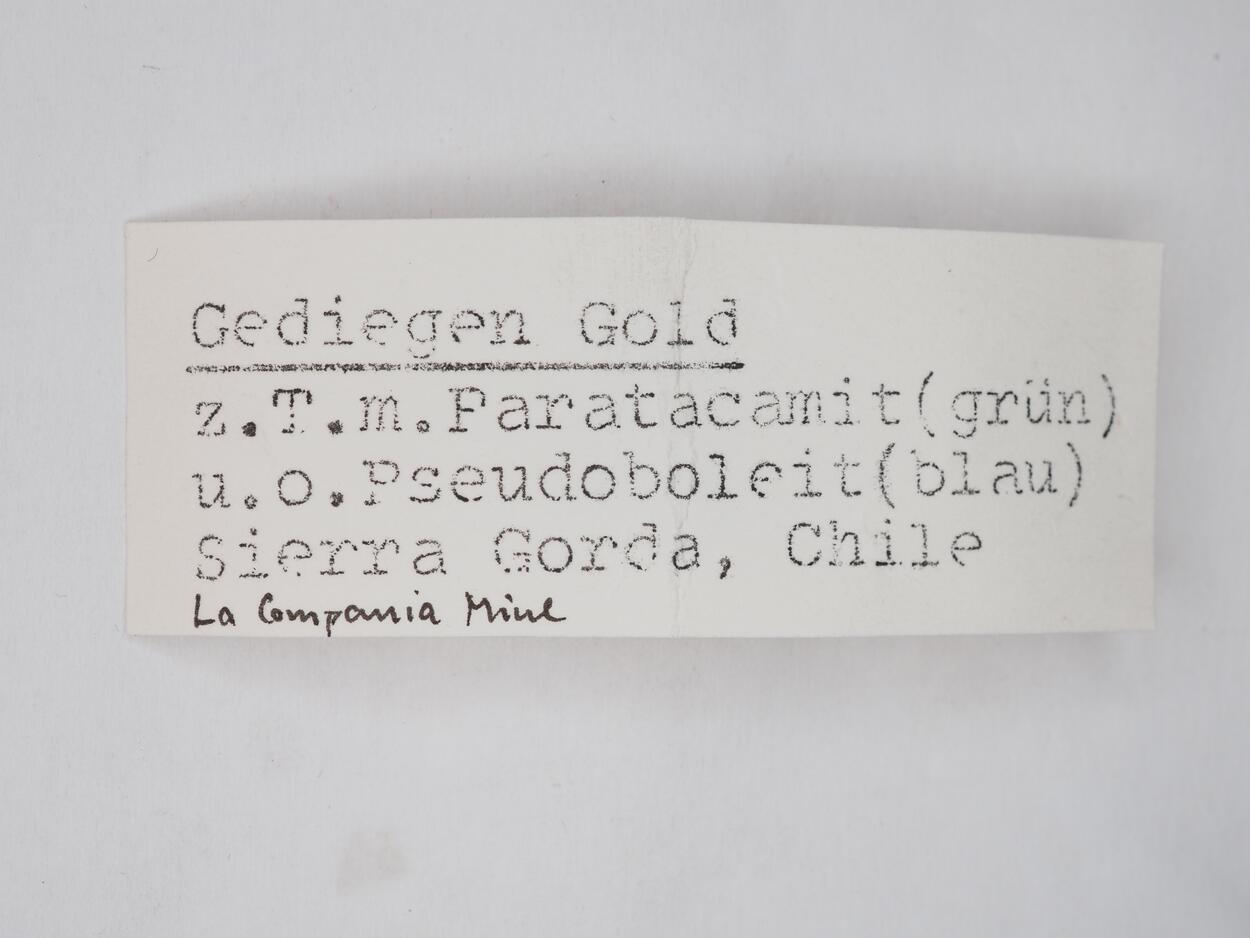 Gediegen Gold
z.T.m.Paratacamit(grün)
u.o.Pseudoboleit(blau)
Sierra Gorda, Chile
La Compania Mine